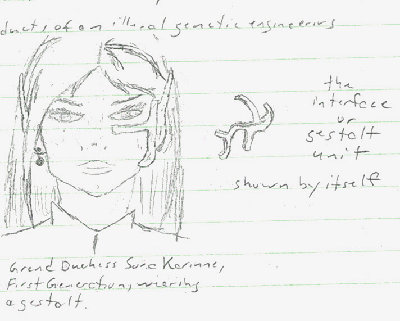 ducts of an illegal genetic engineering
the
interface
or
gestalt
unit
shown by itself
Grand Duchess Sura Karinne,
First Generation, wearing
a gestalt.